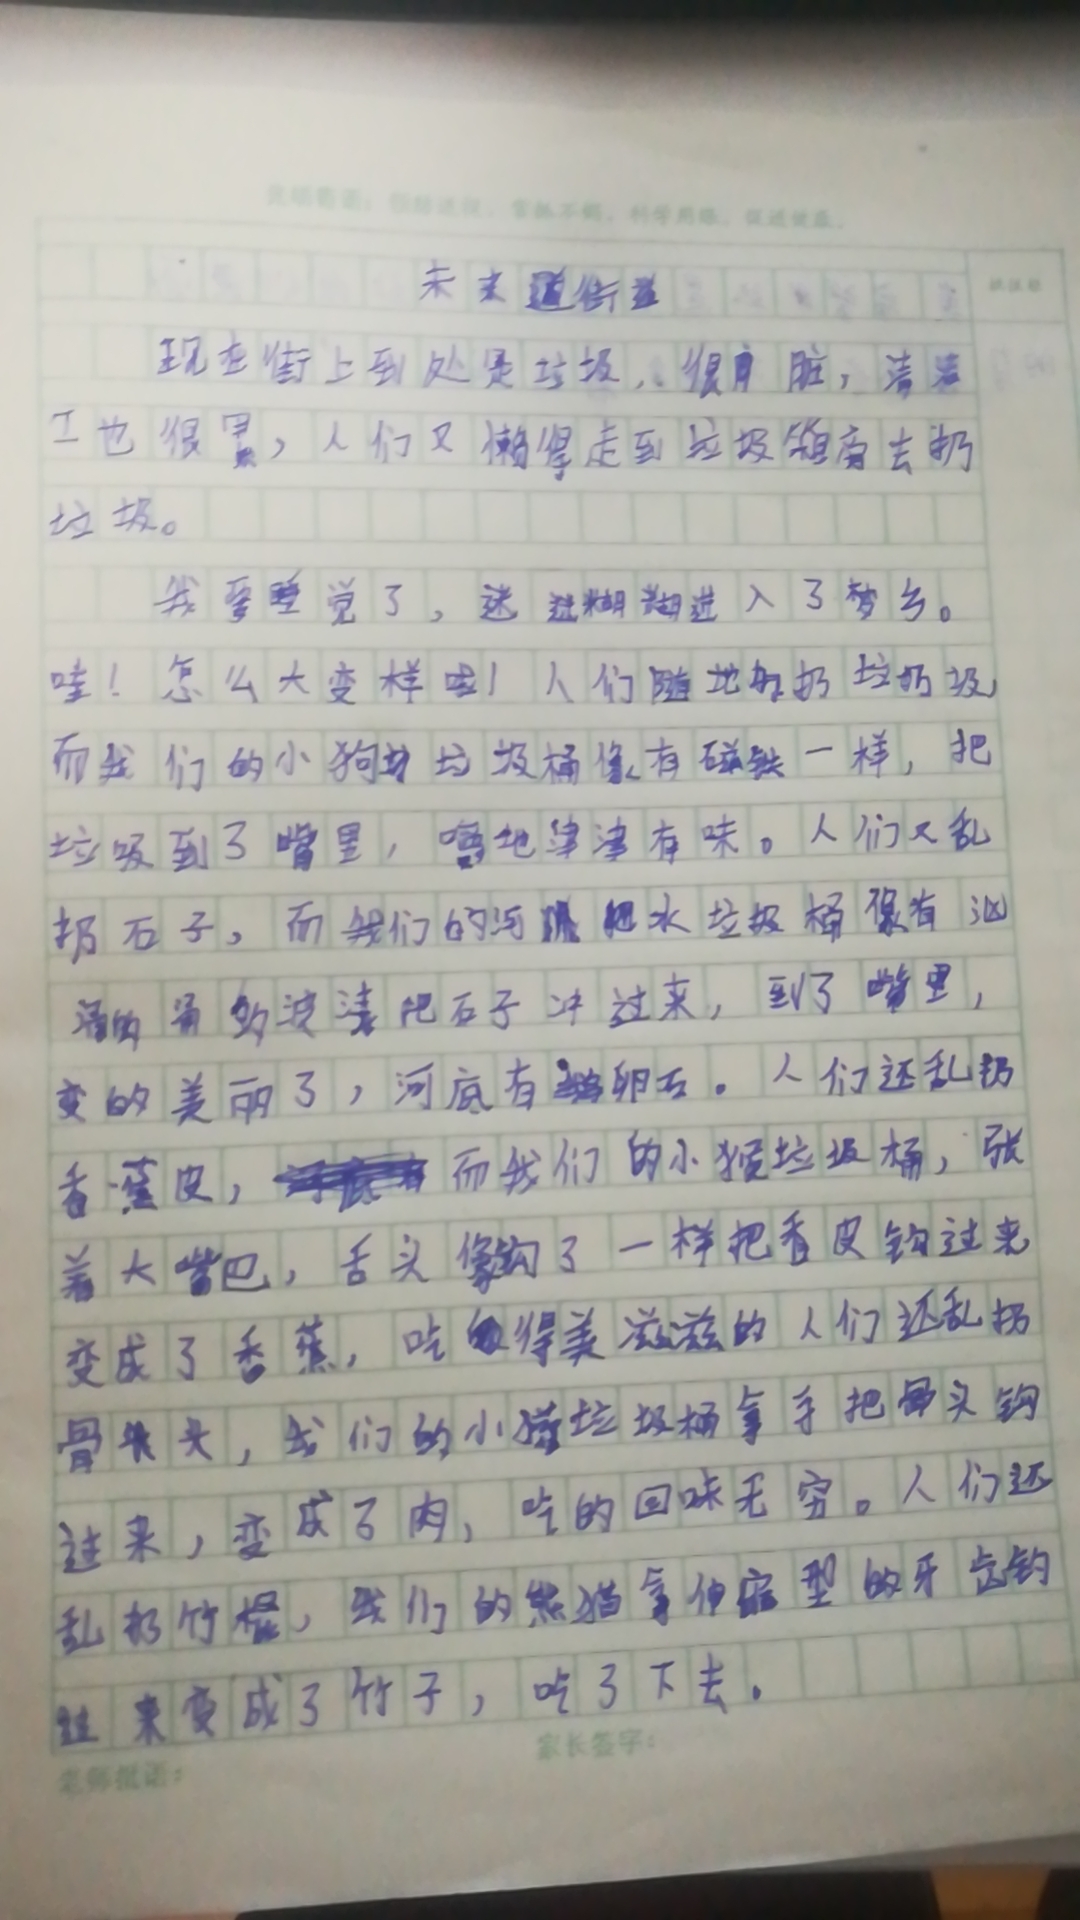 未来街道
现在街上到处是垃圾,很脏,清洁
工也很累,人们又懒得走到垃圾箱旁去扔
垃圾。
我要睡觉了,迷迷糊糊进入了梦乡。
哇!怎么大变样啦!人们随地乱扔垃圾,
而我们的小狗垃圾桶像有磁铁一样,把
垃吸到了嘴里,嚼地津津有味。人们又乱
扔石子,而我们的河水垃圾桶像有汹
涌的波涛把石子冲过来,到了嘴里,
变的美丽了,河底有卵石。人们还乱扔
香蕉皮,而我们的小猴垃圾桶,张
着大嘴巴,舌头像钩了一样把香皮钩过来
变成了香蕉,吃得美滋滋的人们还乱扔
骨头,我们的小猫垃圾桶拿手把骨头钩
过来,变成了肉,吃的回味无穷。人们还
乱扔竹棍,我们的熊猫拿伸缩型的牙齿钩
过来变成了竹子,吃了下去。
家长签字:
老师提语: